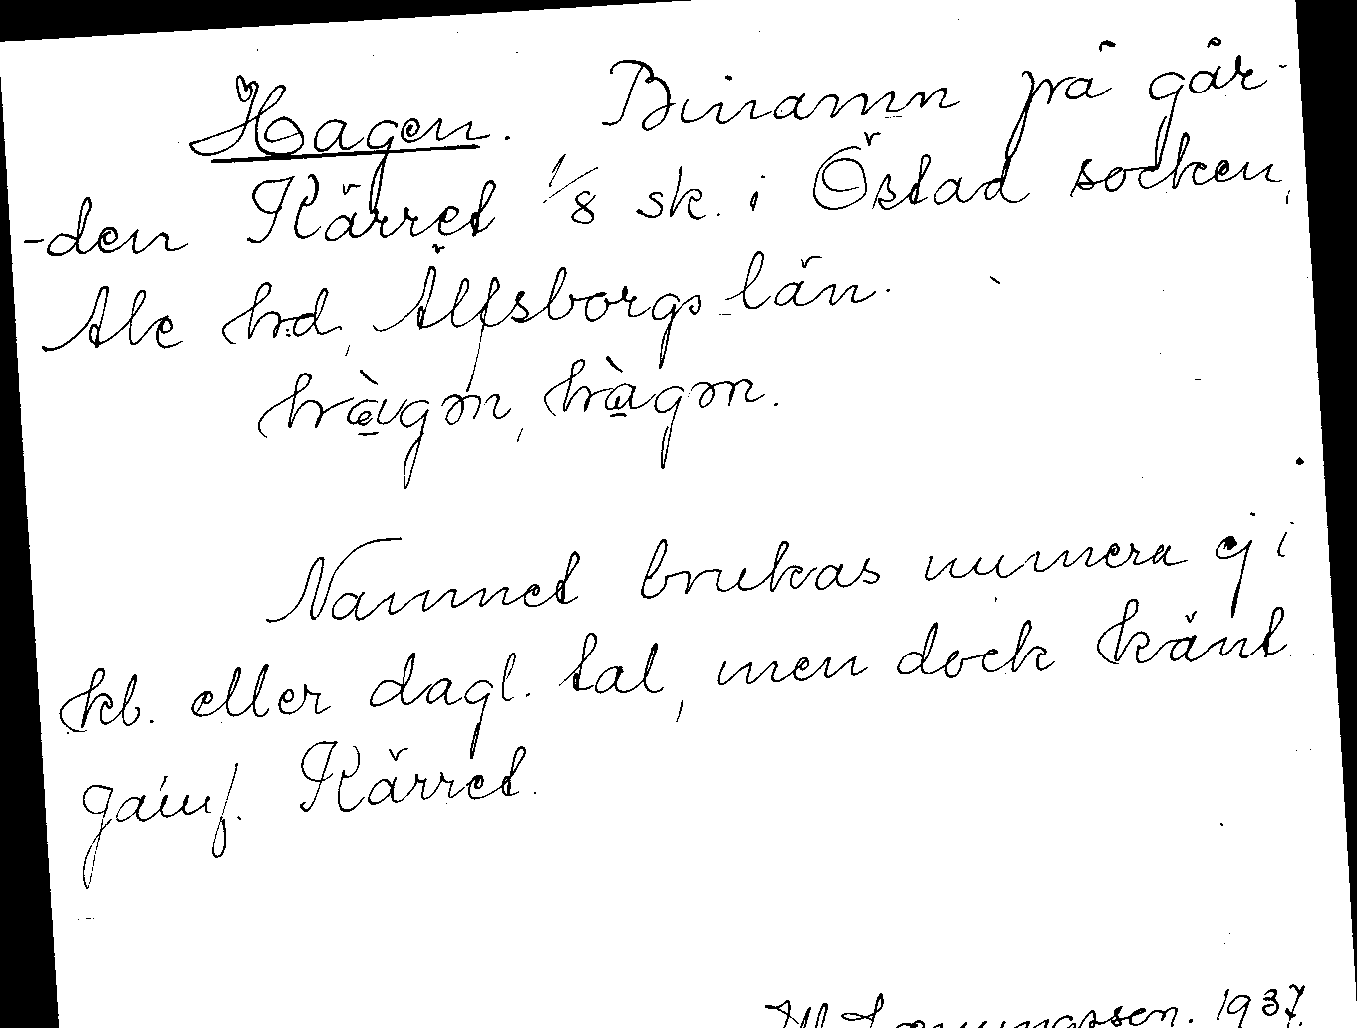 Hagen. Binamn på går-
-den Kärret 1/8 sk. i Östad socken,
Ale hd, Älfsborgs län.
hàgən, hàgən.
Namnet brukas numera ej i
kb. eller dagl. tal, men dock känt
Kärret.
1937.